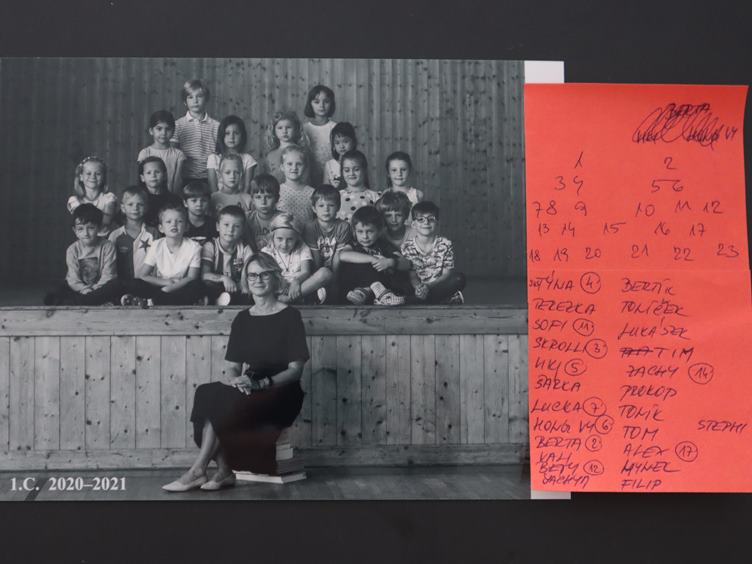 1.C. 2020–2021
BERTA
1 2
3 4 5 6
7 8 9 10 11 12
13 14 15 16 17
18 19 20 21 22 23
TÝNA 4 BERTÍK
TEREZKA TONÍČEK
SOFI 11 LUKÁŠEK
SKROLLI 3 TIM
VIKI 5 ZACHY 14
ŠÁRKA PROKOP
LUCKA 7 TONÍK
HONG VY 6 TOM STEPHI
BERTA 2 ALEX 17
VALI HYNEK
BETY 12 FILIP